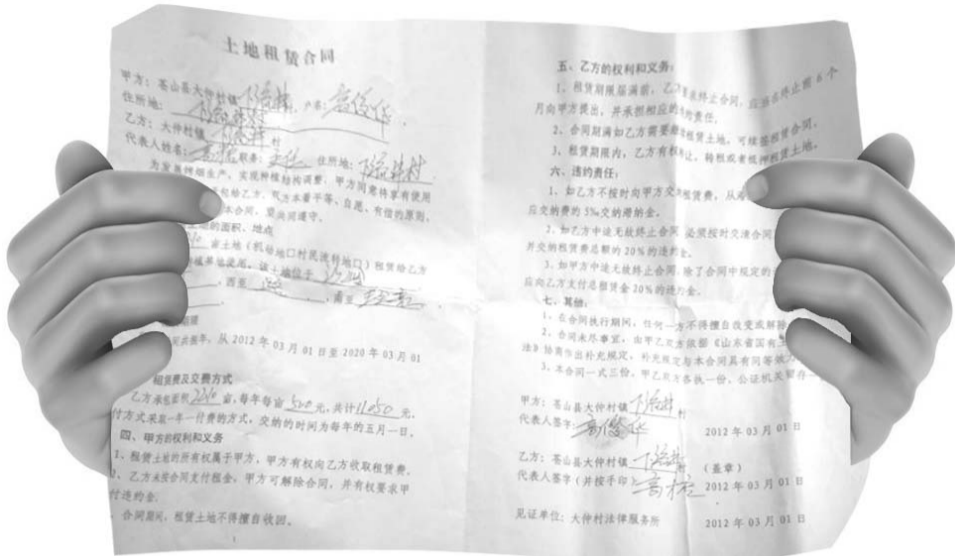 土地租赁合同
甲方：苍山县大仲村镇下流井村，户名：高俊华
住所地：下流井村
乙方：大仲村镇下流井村
代表人姓名：高 职务： 住所地：下流井村
为发展烤烟生产，实现种植结构调整，甲方同意将享有使用
包给乙方，双方本着平等、自愿、有偿的原则，
本合同，望共同遵守。
的面积、地点
亩土地（机场地口村民流转地口）租赁给乙方
使用，该土地位于
，西至 ，南至
从 2012 年 03 月 01 日至 2020 年 03 月 01
租赁费及交费方式
乙方承包面积 亩，每年每亩 500 元，共计 11050 元，
付方式采取一年一付费的方式，交纳的时间为每年的五月一日。
四、甲方的权利和义务
1、租赁土地的所有权属于甲方，甲方有权向乙方收取租赁费。
2、乙方未按合同支付租金，甲方可解除合同，并有权要求甲
付违约金。
合同期间，租赁土地不得擅自收回。
五、乙方的权利和义务：
1、租赁期限届满前，乙方要求终止合同，应当在终止前 6 个
月向甲方提出，并承担相应的违约责任。
2、合同期满如乙方需要继续租赁土地，可续签租赁合同。
3、租赁期限内，乙方有权转让，转租或者抵押租赁土地。
六、违约责任：
1、如乙方不按时向甲方交纳租赁费，从
应交纳费的 5‰交纳滞纳金。
2、如乙方中途无故终止合同，必须按时交清合同
并交纳租赁费总额的 20%的违约金。
3、如甲方中途无故终止合同，除了合同中规定的
应向乙方支付总租赁金 20%的违约金。
七、其他：
1、在合同执行期间，任何一方不得擅自改变或解除
2、合同未尽事宜，由甲乙双方依据《山东省国有土
法》协商作出补充规定，补充规定与本合同具有同等效力
3、本合同一式三份，甲乙双方各执一份，公证机关留存一
甲方：苍山县大仲村镇下流井村
代表人签字：高俊华 2012 年 03 月 01 日
乙方：苍山县大仲村镇下流井村 （盖章）
代表人签字（并按手印）：高 2012 年 03 月 01 日
见证单位：大仲村法律服务所 2012 年 03 月 01 日